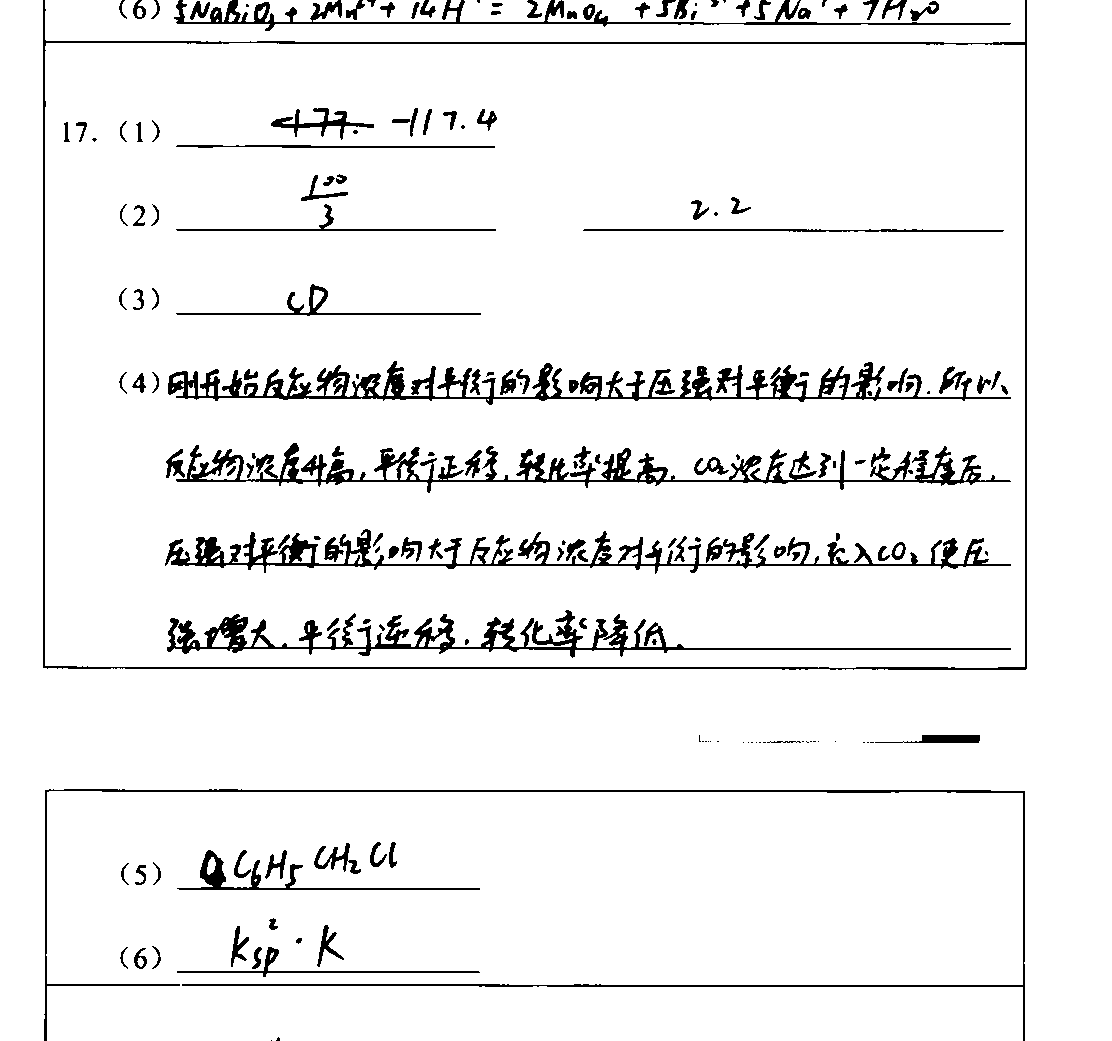 (6) 5NaBiO₃ + 2Mn²⁺ + 14H⁺ = 2MnO₄⁻ + 5Bi³⁺ + 5Na⁺ + 7H₂O
17.(1) -177. -117.4
(2) 100/3 2.2
(3) CD
(4) 刚开始反应物浓度对平衡的影响大于压强对平衡的影响.所以
反应物浓度升高,平衡正移,转化率提高.CO₂浓度达到一定程度后,
压强对平衡的影响大于反应物浓度对平衡的影响,充入CO₂使压
强增大.平衡逆移.转化率降低.
(5) C₆H₅CH₂Cl
(6) Ksp²·K